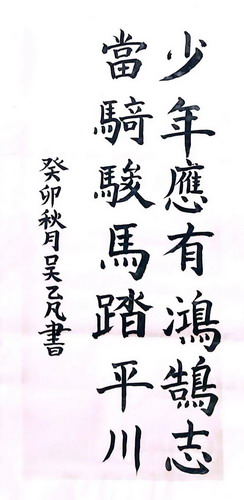 少年應有鴻鵠志
當騎駿馬踏平川
癸卯秋月吴乙凡書